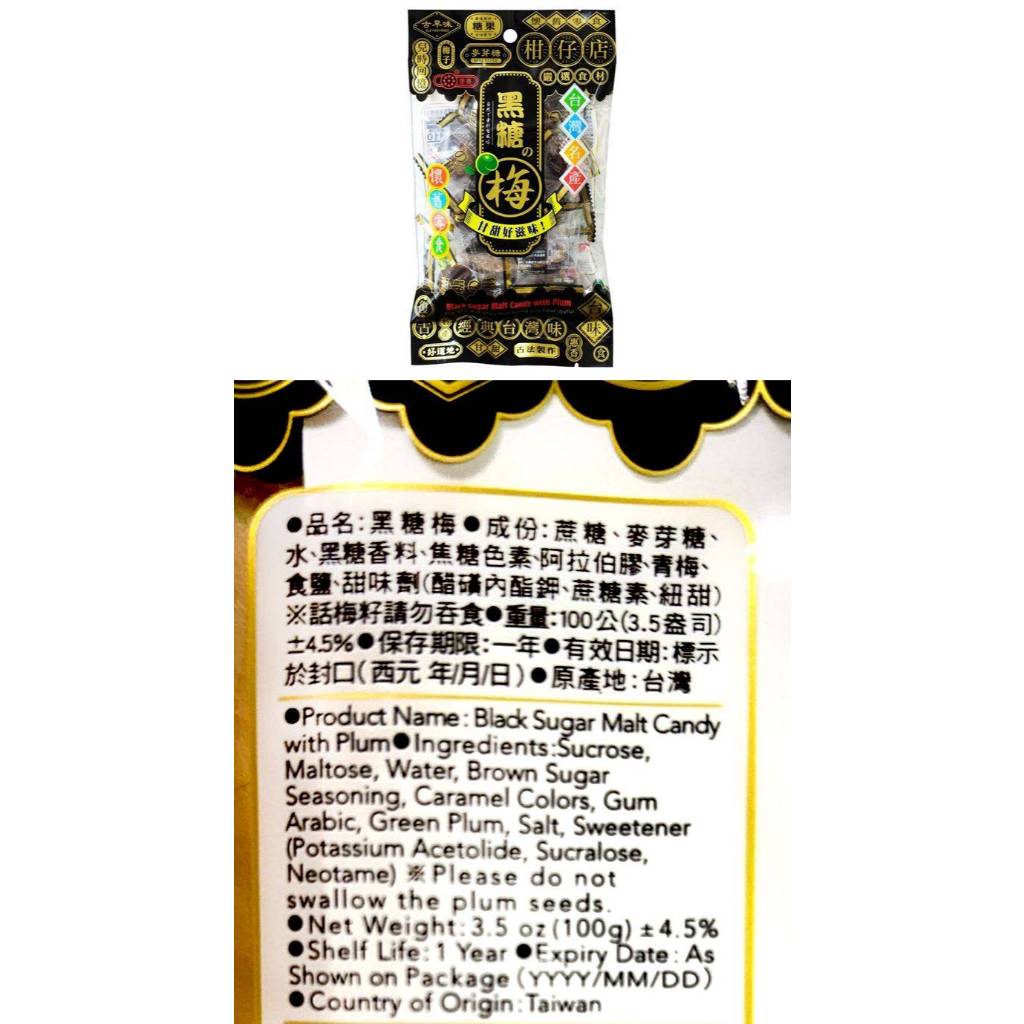 古早味
糖果
懷舊零食
兒時回憶
梅子
麥芽糖
柑仔店
嚴選食材
黑糖の梅
台灣名產
懷舊零食
甘甜好滋味!
Black Sugar Malt Candy with Plum
經典台灣味
好道地
甘甜
古法製作
●品名:黑糖梅●成份:蔗糖、麥芽糖、
水、黑糖香料、焦糖色素、阿拉伯膠、青梅、
食鹽、甜味劑(醋磺內酯鉀、蔗糖素、紐甜)
※話梅籽請勿吞食●重量:100公(3.5盎司)
±4.5%●保存期限:一年●有效日期:標示
於封口(西元 年/月/日)●原產地:台灣
●Product Name: Black Sugar Malt Candy
with Plum●Ingredients:Sucrose,
Maltose, Water, Brown Sugar
Seasoning, Caramel Colors, Gum
Arabic, Green Plum, Salt, Sweetener
(Potassium Acetolide, Sucralose,
Neotame) ※Please do not
swallow the plum seeds.
●Net Weight:3.5 oz (100g) ±4.5%
●Shelf Life: 1 Year ●Expiry Date: As
Shown on Package (YYYY/MM/DD)
●Country of Origin:Taiwan